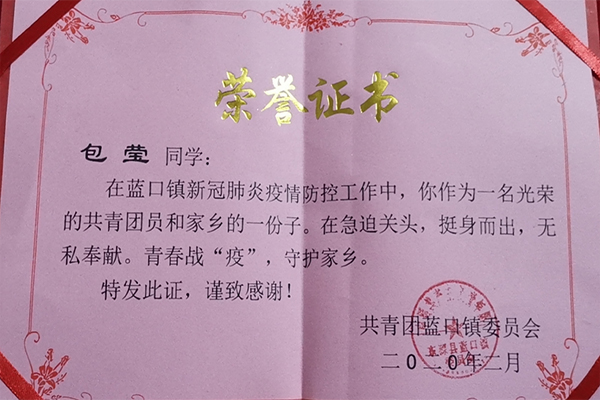 荣誉证书
包莹 同学：
在蓝口镇新冠肺炎疫情防控工作中，你作为一名光荣
的共青团员和家乡的一份子。在急迫关头，挺身而出，无
私奉献。青春战“疫”，守护家乡。
特发此证，谨致感谢！
共青团蓝口镇委员会
二0二0年二月